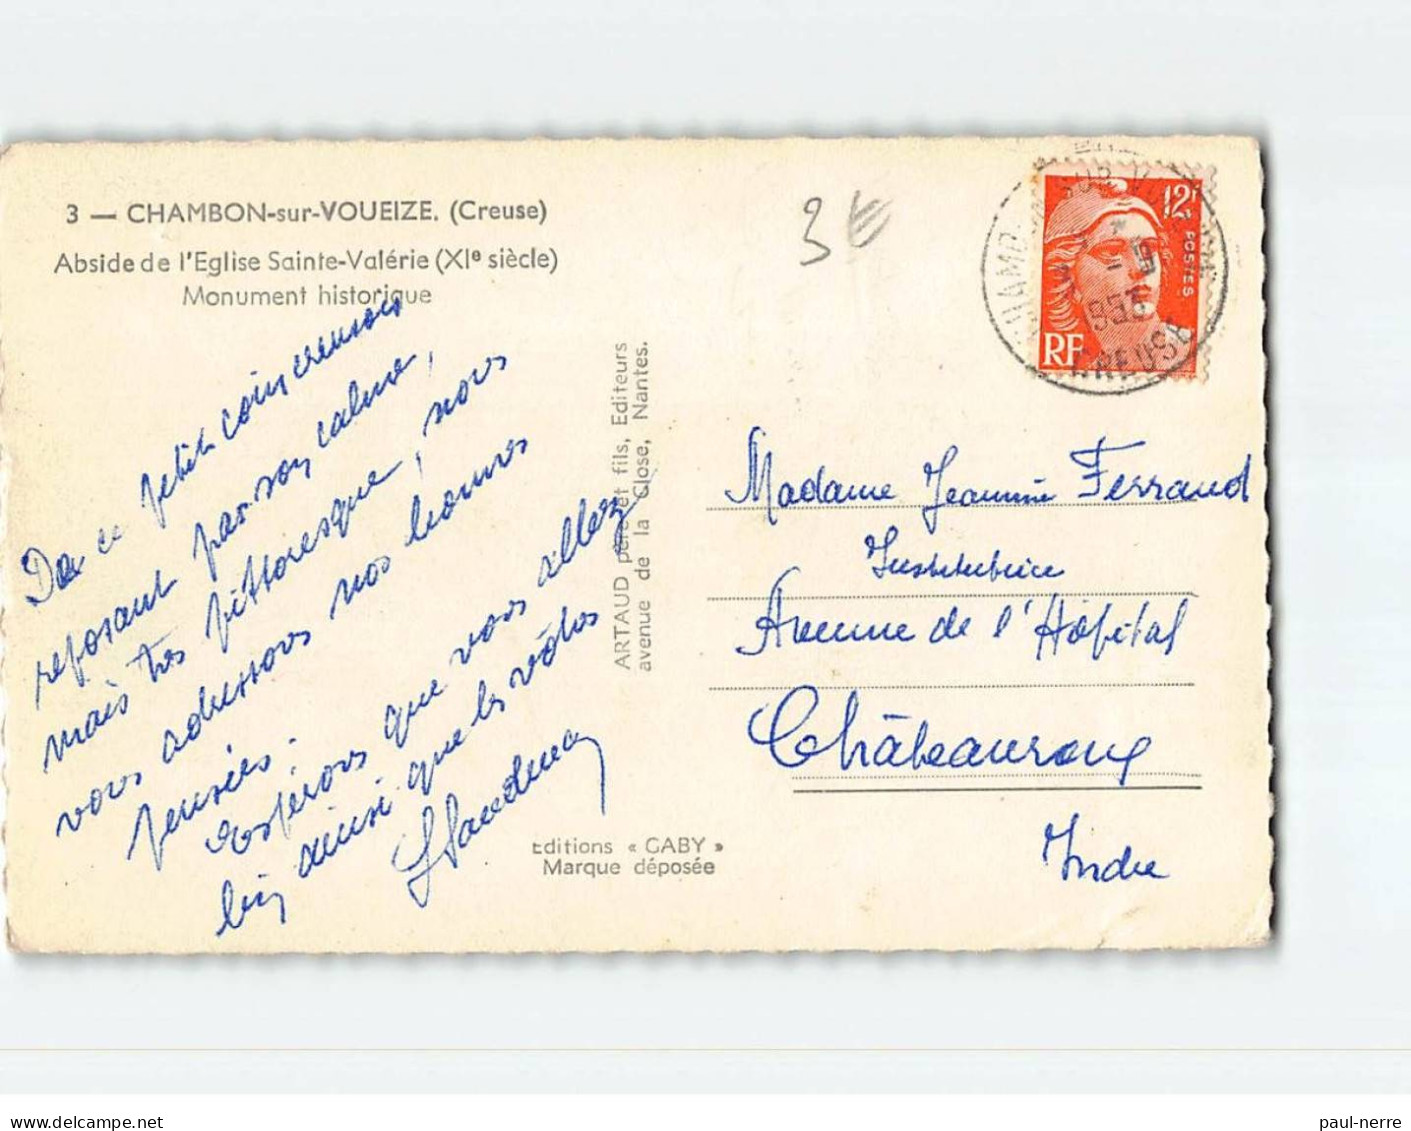 3 — CHAMBON-sur-VOUEIZE. (Creuse)
Abside de l'Eglise Sainte-Valérie (XIe siècle)
Monument historique
De ce petit coin creusois
reposant par son calme,
mais très pittoresque, nous
vous adressons nos bonnes
pensées.
Espérons que vous allez
bien ainsi que les vôtres
ARTAUD père et fils, Editeurs
avenue de la Close, Nantes.
Editions « GABY »
Marque déposée
3€
12F
POSTES
RF
CREUSE
Madame Jeannine Ferraud
Institutrice
Avenue de l'Hôpital
Châteauroux
Indre
delcampe.net
paul-nerre